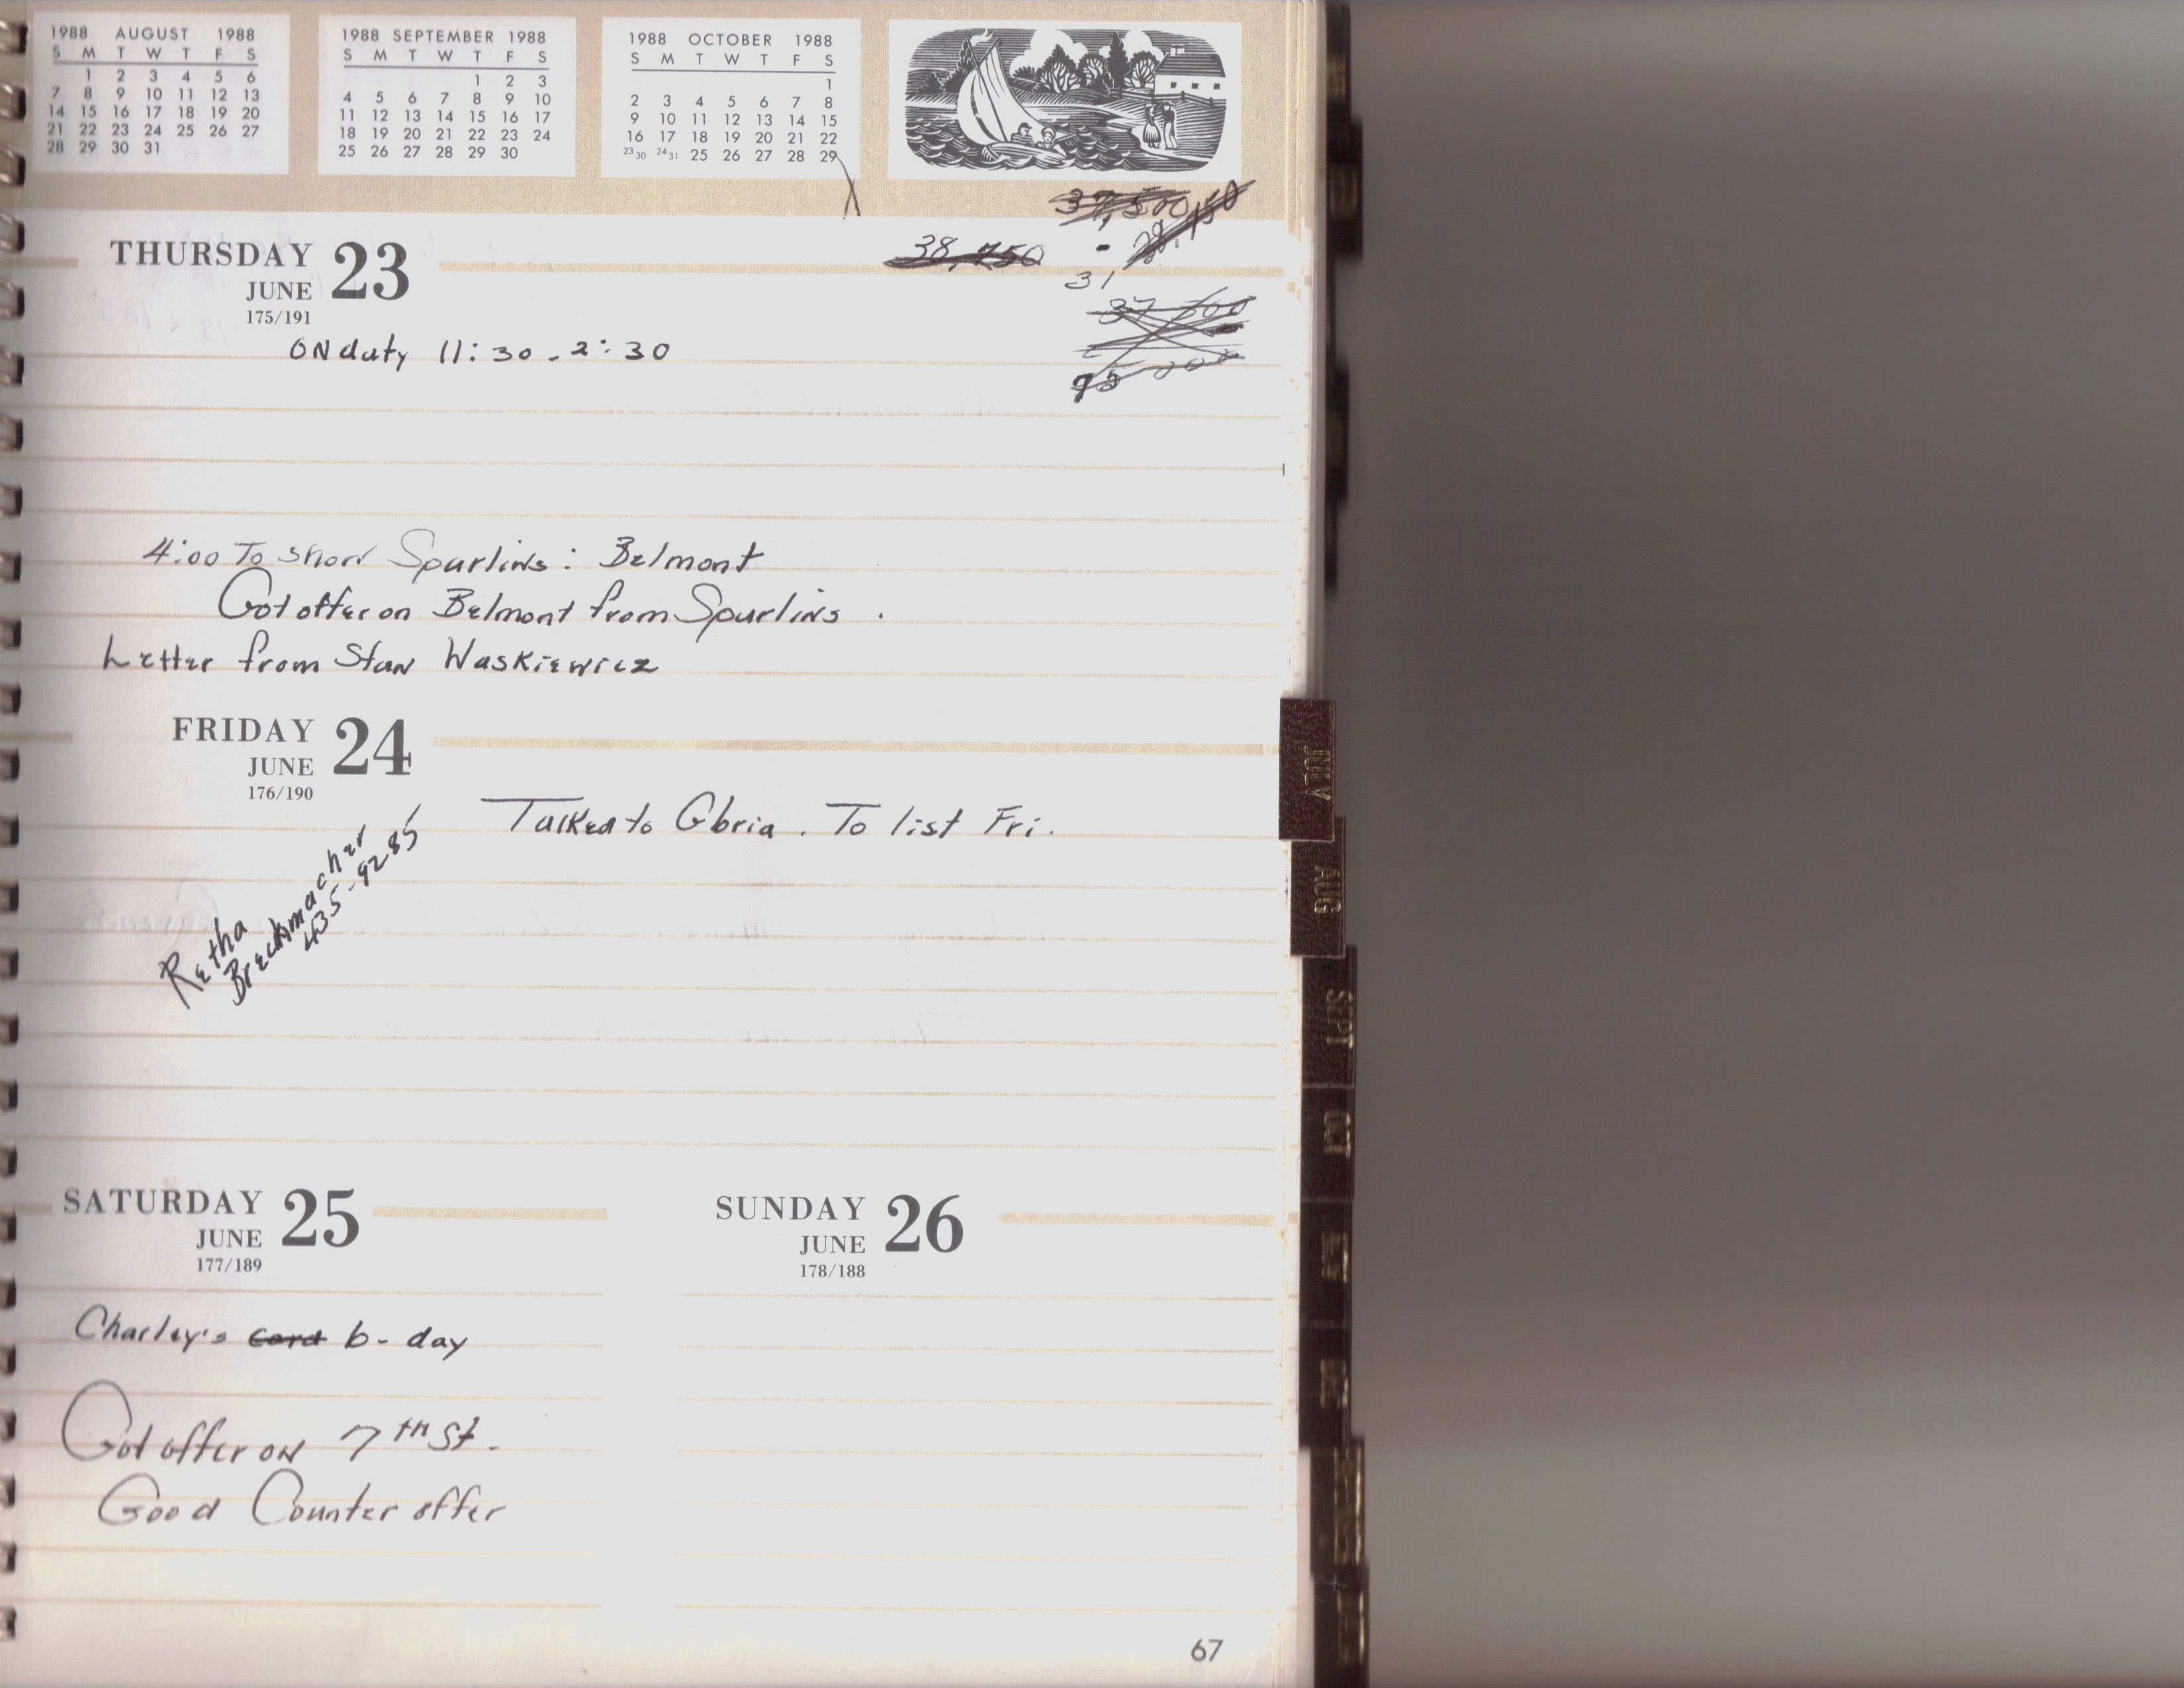 1988 AUGUST 1988
S M T W T F S
1 2 3 4 5 6
7 8 9 10 11 12 13
14 15 16 17 18 19 20
21 22 23 24 25 26 27
28 29 30 31
1988 SEPTEMBER 1988
S M T W T F S
1 2 3
4 5 6 7 8 9 10
11 12 13 14 15 16 17
18 19 20 21 22 23 24
25 26 27 28 29 30
1988 OCTOBER 1988
S M T W T F S
1
2 3 4 5 6 7 8
9 10 11 12 13 14 15
16 17 18 19 20 21 22
23 30 24 31 25 26 27 28 29
37,500
38,750 -
31
37 500
75 000
THURSDAY 23
JUNE
175/191
ON duty 11:30 - 2:30
4:00 To show Spurlins: Belmont
Got offer on Belmont from Spurlins.
Letter from Stan Waskiewicz
FRIDAY 24
JUNE
176/190
Talked to Gloria. To list Fri.
Retha
435-9285
SATURDAY 25
JUNE
177/189
Charley's card b-day
Got offer on 7th St.
Good Counter offer
SUNDAY 26
JUNE
178/188
JULY
AUG
SEPT
OCT
67